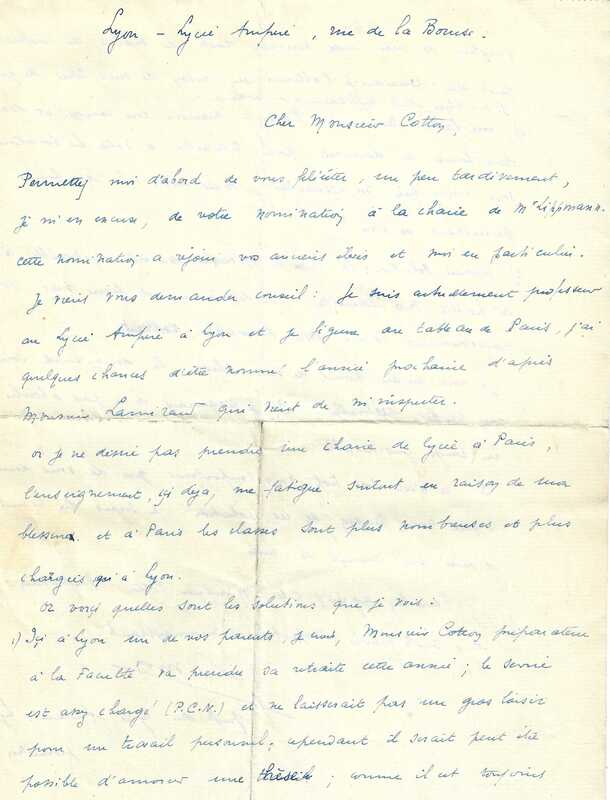 Lyon – Lycée Ampère, rue de la Bourse.
Cher Monsieur Cotton,
Permettez moi d'abord de vous féliciter, un peu tardivement,
je m'en excuse, de votre nomination à la chaire de Mr Lippmann.
cette nomination a réjoui vos anciens élèves et moi en particulier.
Je viens vous demander conseil : Je suis actuellement professeur
au Lycée Ampère à Lyon et je figure au tableau de Paris, j'ai
quelques chances d'être nommé l'année prochaine d'après
Monsieur Lamirand qui vient de m'inspecter.
Or je ne désire pas prendre une chaire de lycée à Paris,
l'enseignement, içi déja, me fatigue surtout en raison de ma
blessure et à Paris les classes sont plus nombeuses et plus
chargées qu'à Lyon.
Or voiçi quelles sont les solutions que je vois :
1) Içi à Lyon un de vos parents, je crois, Monsieur Cotton préparateur
à la Faculté va prendre sa retraite cette année ; le service
est assez chargé (P.C.N.) et ne laisserait pas un gros loisir
pour un travail personnel, cependant il serait peut être
possible d'amorcer une thèse ; comme il est toujours